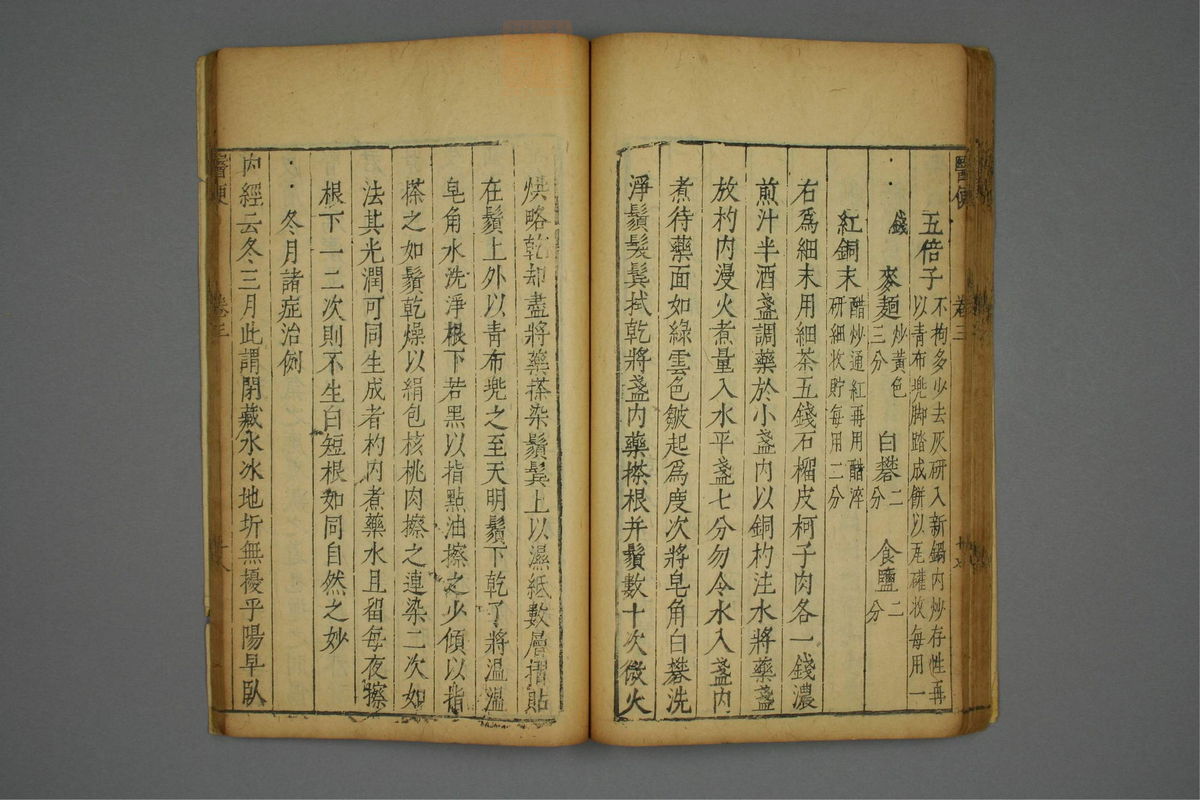 五倍子 不拘多少去灰研入新鍋內炒存性再
以青布兜脚踏成餅以瓦礶收每用一
錢 麥麵 炒黃色三分 白礬 二分 食鹽 二分
紅銅末 醋炒通紅再用醋淬
研細收貯每用二分
右爲細末用細茶五錢石榴皮柯子肉各一錢濃
煎汁半酒盞調藥於小盞內以銅杓注水將藥盞
放杓內漫火煮量入水平盞七分勿令水入盞內
煮待藥面如綠雲色皺起爲度次將皂角白礬洗
淨鬚髮鬢拭乾將盞內藥搽根并鬚數十次微火
熯略乾却盡將藥搽染鬚鬢上以濕紙數層摺貼
在鬚上外以青布兜之至天明鬚下乾了將溫溫
皂角水洗淨根下若黑以指點油擦之少傾以指
搽之如鬚乾燥以絹包核桃肉擦之連染二次如
法其光潤可同生成者杓內煮藥水且留每夜擦
根下一二次則不生白短根如同自然之妙
冬月諸症治例
內經云冬三月此謂閉藏水冰地圻無擾乎陽早臥
醫便
卷三
醫便
卷三